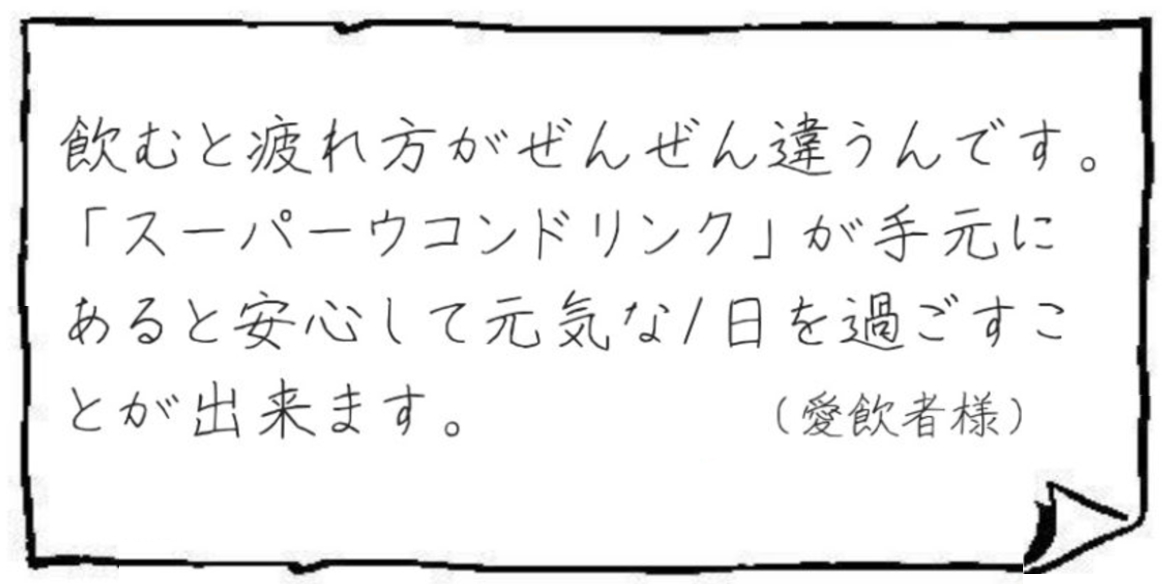 飲むと疲れ方がぜんぜん違うんです。
「スーパーウコンドリンク」が手元に
あると安心して元気な1日を過ごすこ
とが出来ます。
（愛飲者様）